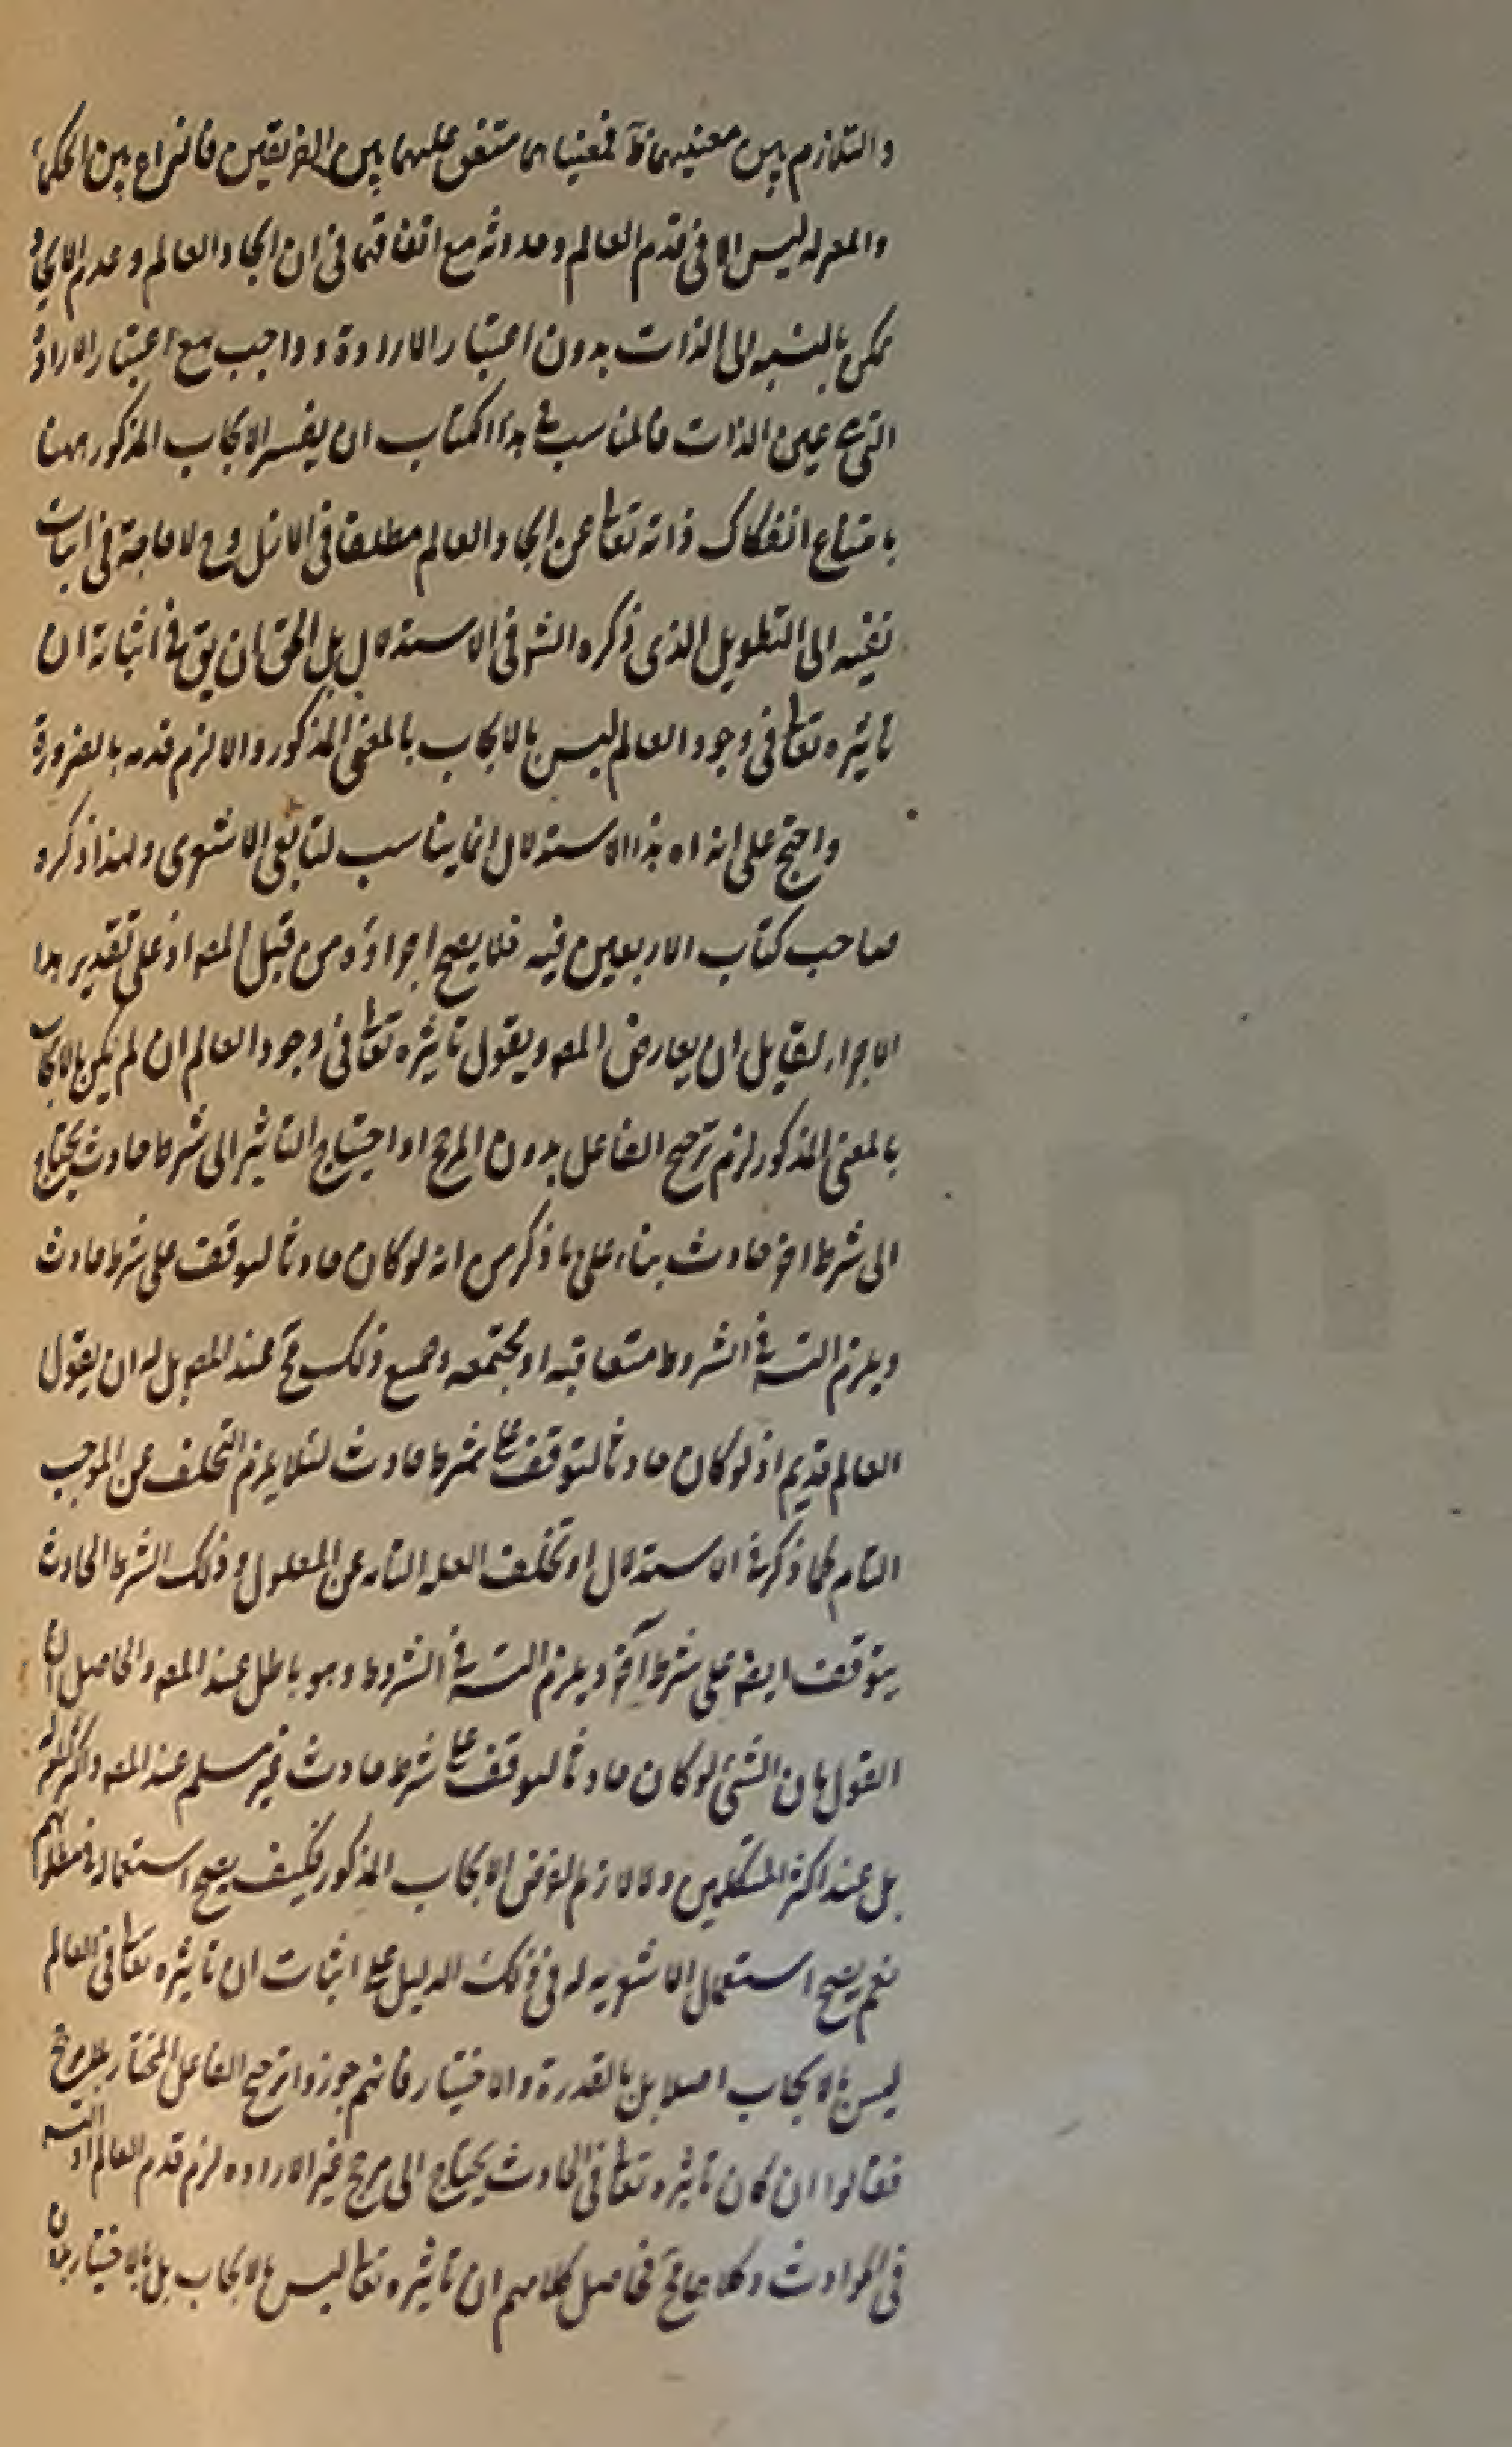 والتلازم بين معنييهما ظ فمعنياهما متفق عليهما بين الفريقين فالنزاع بين الحكماء
والمعتزله ليس الا فى قدم العالم وحدوثه مع اتفاقهما فى ان ايجاد العالم وعدم الايجاد
ممكن بالنسبه الى الذات بدون اعتبار الارادة وواجب مع اعتبار الارادة
التى هى عين الذات فالمناسب فى هذا الكتاب ان يفسر الايجاب المذكور ههنا
بامتناع انفكاك ذاته تعالى عن ايجاد العالم مطلقا فى الازل وح لا حاجة فى اثبات
نفيه الى التطويل الذى ذكره الشو فى الاستدلال بل الحق ان يق فى اثباته ان
تاثيره تعالى فى وجود العالم ليس بالايجاب بالمعنى المذكور والا لزم قدمه بالضرورة
واحتج على انه اه هذا الاستدلال انما يناسب لتابعى الاشعرى ولهذا ذكره
صاحب كتاب الاربعين فيه فلا يصح اجراؤه من قبل المصه اذ على تقدير هذا
الاجراء لقايل ان يعارض المصه ويقول تاثيره تعالى فى وجود العالم ان لم يكن بالايجاب
بالمعنى المذكور لزم ترجيح الفاعل بدون المرجح او احتياج التاثير الى شرط حادث يحتاج
الى شرط اخر حادث بناء على ما ذكر من انه لو كان حادثا لتوقف على شرط حادث
ويلزم التسه فى الشروط متعاقبه او مجتمعه وجميع ذلك مح عند المصه بل له ان يقول
العالم قديم اذ لو كان حادثا لتوقف على شرط حادث لئلا يلزم التخلف عن الموجب
التام كما ذكر فى الاستدلال او تخلف العله التامه عن المعلول وذلك الشرط الحادث
يتوقف ايضه على شرط آخر ويلزم التسه فى الشروط وهو باطل عند المصه والحاصل ان
القول بان الشئ لو كان حادثا لتوقف على شرط حادث غير مسلم عند المصه واكثر المعتزله
بل عند اكثر المتكلمين ولا لازم لفرض الايجاب المذكور فكيف يصح استعماله فى مطلوبهم
نعم يصح استعمال الاشعريه له فى ذلك الدليل على اثبات ان تاثيره تعالى فى العالم
ليس بالايجاب اصلا بل بالقدرة والاختيار فانهم جوزوا ترجيح الفاعل المختار بلا مرجح
فقالوا ان كان تاثيره تعالى فى الحادث يحتاج الى مرجح غير الاراده لزم قدم العالم او التسه
فى الحوادث وكلاهما مح فحاصل كلامهم ان تاثيره تعالى ليس بالايجاب بل بالاختيار